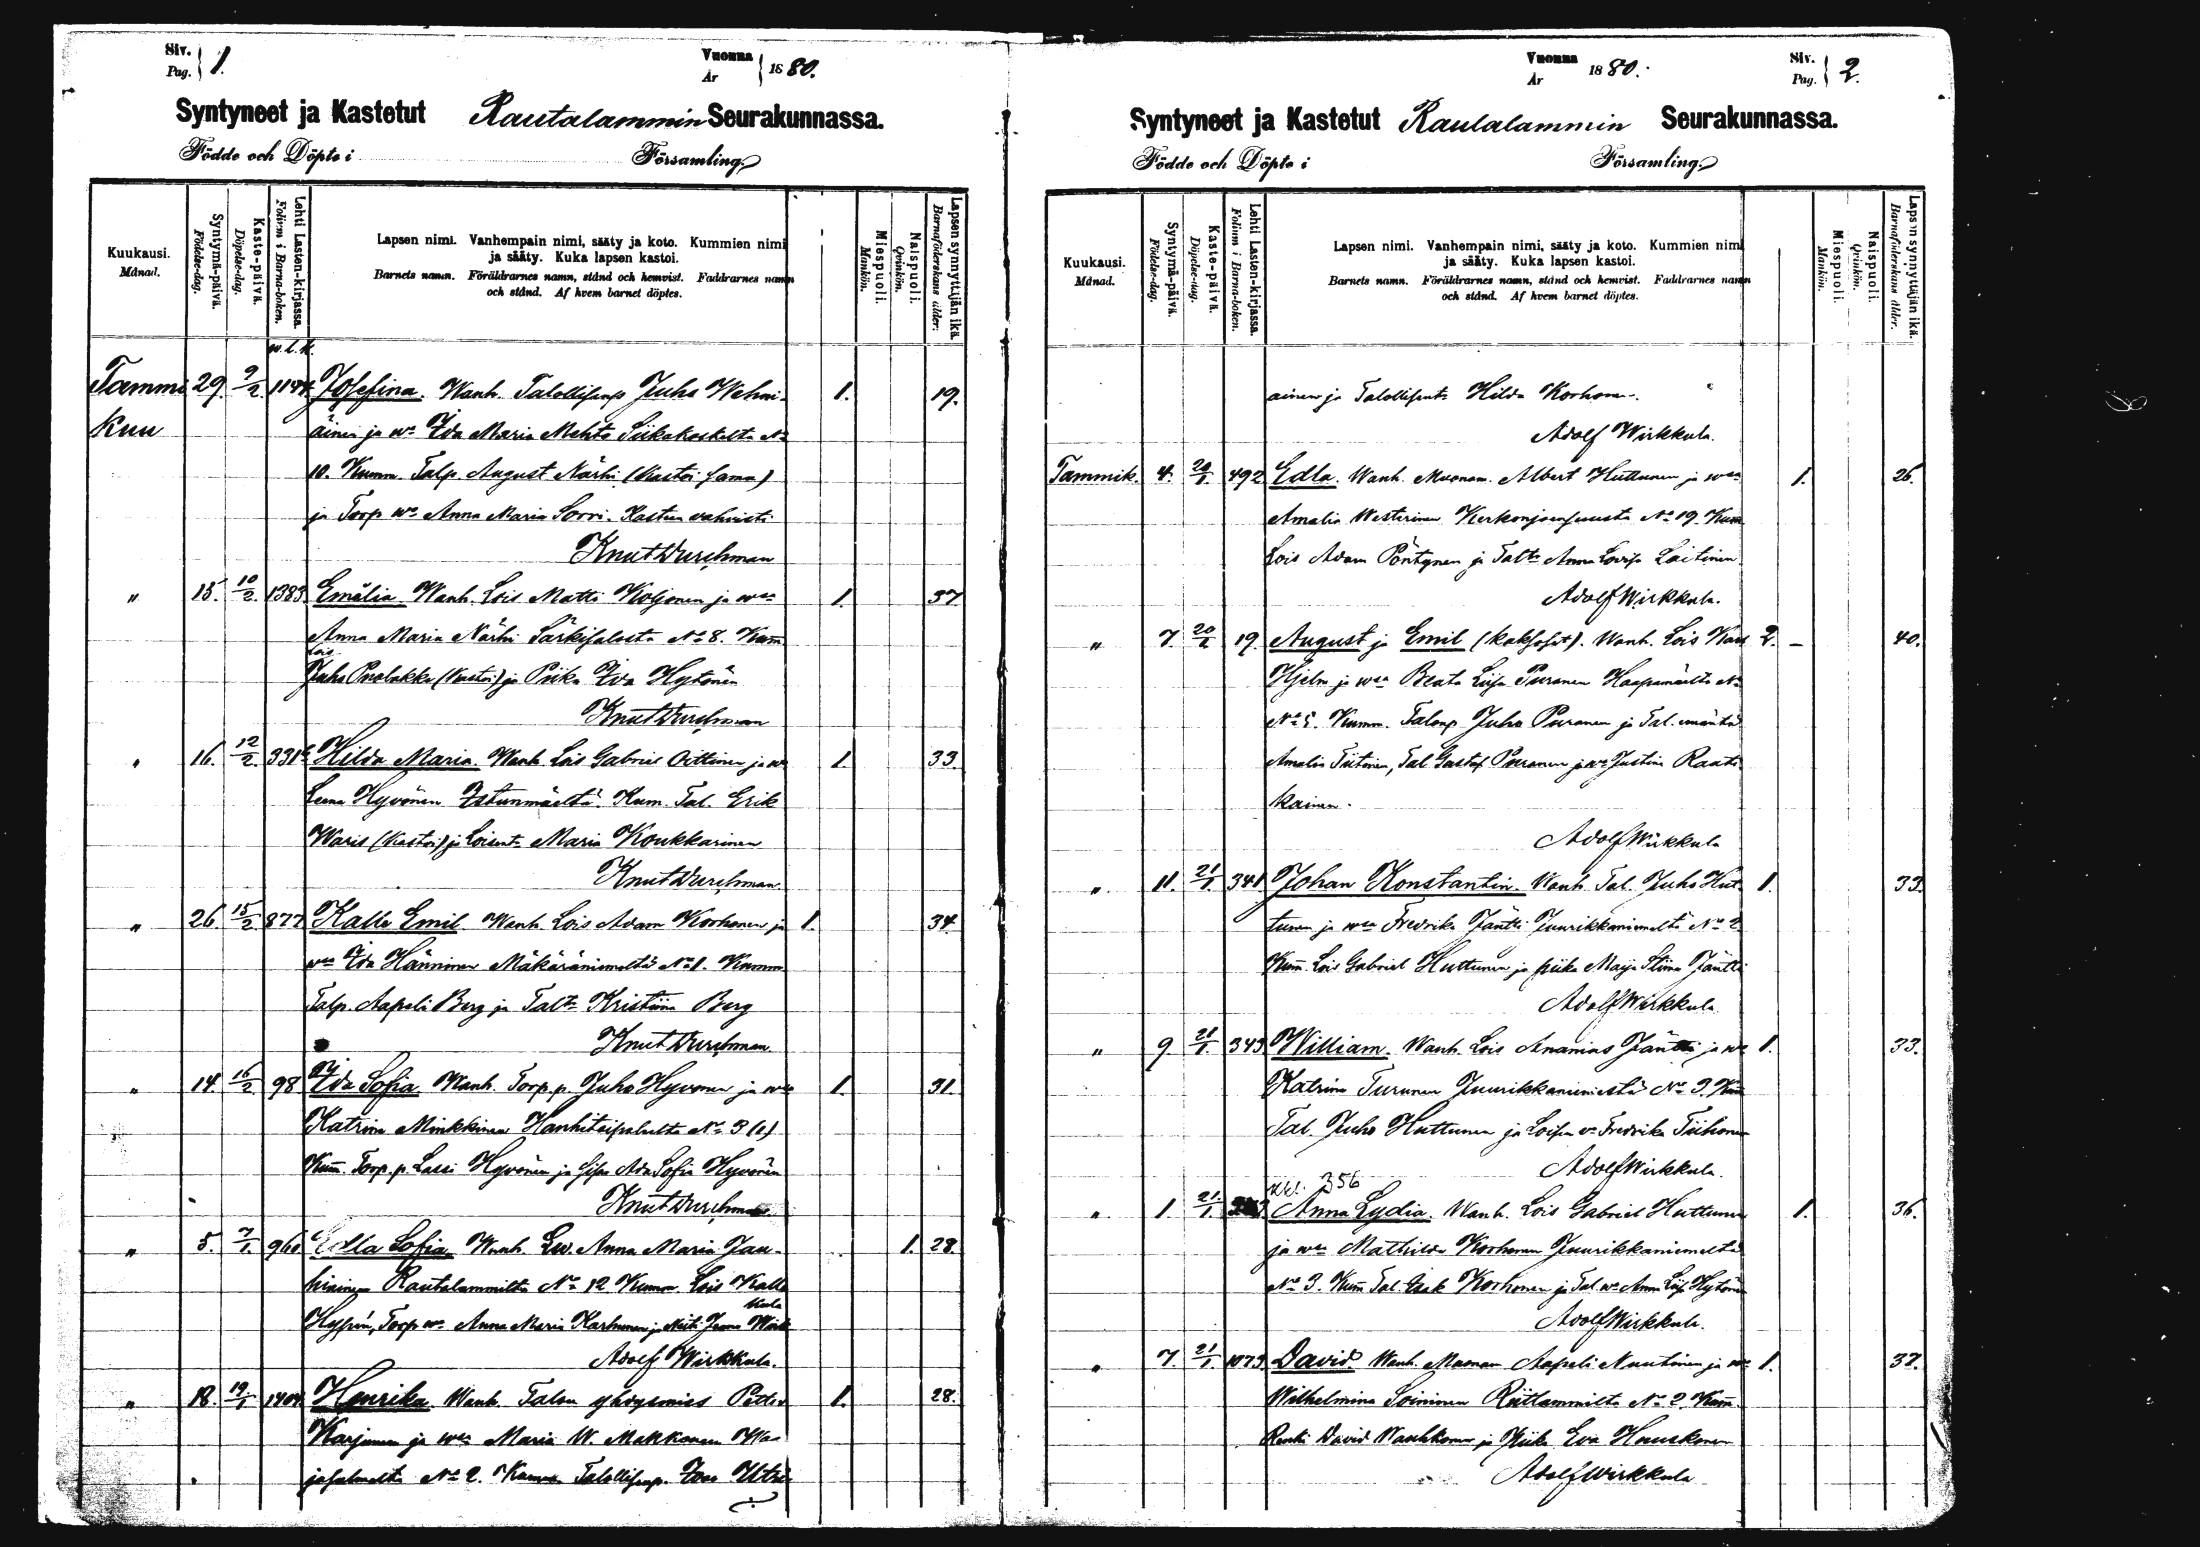 Siv.
Pag. 1.
Vuonna
År 1880.
Syntyneet ja Kastetut Rautalammin Seurakunnassa.
Födde och Döpte i Församling.
Kuukausi.
Månad.
Syntymä-päivä.
Födelse-dag.
Kaste-päivä.
Döpelse-dag.
Lehti Lasten-kirjassa.
Folium i Barna-boken.
Lapsen nimi. Vanhempain nimi, sääty ja koto. Kummien nimi
ja sääty. Kuka lapsen kastoi.
Barnets namn. Föräldrarnes namn, stånd och hemvist. Faddrarnes namn
och stånd. Af hvem barnet döptes.
Miespuoli.
Mankön.
Naispuoli.
Qvinkön.
Lapsen synnyttäjän ikä.
Barnaföderskans ålder.
Tammi 29. 9/2. Josefina. Wanh. Talollisenp Juho Wehvi- 1. 19.
kuu äinen ja wo Ida Maria Mehto Siikakoskelta No
10. Kumm. Talp. August Närhi (Kastoi sama)
ja Torp wo Anna Maria Sorri. Kasteen vahvisti
Knut Durchman
" 15. 10/2. 1383. Emälia Wanh. Lois Matti Koljonen ja wmo 1. 37.
Anna Maria Närhi Särkisalosta No 8. Kumm
Lois
Juho Puolakka (Kastoi) ja Piika Eva Hytönen
Knut Durchman
" 16. 12/2. 331 Hilda Maria. Wanh. Lois Gabriel Oittinen ja wo 1. 33.
Leena Hyvönen Istunmäeltä. Kum. Tal. Erik
Waris (Kastoi) ja Loisent. Maria Koukkarinen
Knut Durchman
" 26. 15/2. 877 Kalle Emil. Wanh. Lois Adam Korhonen ja 1. 34.
wmo Ida Hänninen Mäkäräniemeltä No 1. Kumm
Talp. Aapeli Berg ja Talt. Kristiina Berg
Knut Durchman.
" 14. 16/2. 98 Ida Sofia Wanh. Torp. p. Juho Hyvönen ja wmo 1. 31.
Katrina Minkkinen Hanhitaipaleelta No 3
Kum. Torp. p. Lassi Hyvönen ja Ada Sofia Hyvönen
Knut Durchman
" 5. 7/1. 960 Edla Sofia Wanh. Lw. Anna Maria Jau- 1. 28.
hiainen Rautalammilta No 12 Kumm. Lois Kalle
Torp wo Anna Maria Karhunen ja Neiti Jenni Wirk
kula
Adolf Wirkkula.
" 18. 19/1 1404. Henrika Wanh. Talon yhdysmies Petter 1. 28.
Karjunen ja wmo Maria W. Makkonen
No 2. Kumm. Talollisenp.
Vuonna
År 1880.
Siv.
Pag. 2.
Syntyneet ja Kastetut Rautalammin Seurakunnassa.
Födde och Döpte i Församling.
Kuukausi.
Månad.
Syntymä-päivä.
Födelse-dag.
Kaste-päivä.
Döpelse-dag.
Lehti Lasten-kirjassa.
Folium i Barna-boken.
Lapsen nimi. Vanhempain nimi, sääty ja koto. Kummien nimi
ja sääty. Kuka lapsen kastoi.
Barnets namn. Föräldrarnes namn, stånd och hemvist. Faddrarnes namn
och stånd. Af hvem barnet döptes.
Miespuoli.
Mankön.
Naispuoli.
Qvinkön.
Lapsen synnyttäjän ikä.
Barnaföderskans ålder.
ainen ja Talollisent. Hilda Korhonen.
Adolf Wirkkula.
Tammik. 4. 20/1 492 Edla. Wanh. Muonam. Albert Huttunen ja wmo 1. 26.
Amalia Westerinen Kerkonjoensuusta No 19. Kum
Lois Adam Pöntynen ja Talt. Anna Lovisa Laitinen
Adolf Wirkkula.
" 7. 20/1 19. August ja Emil (kaksoset). Wanh. Lois 2. - 40.
Hjelm ja wmo Beata Liisa Puranen Haapamäeltä No
No 5. Kumm. Talonp. Juho Puranen ja Tal. emäntä
Amalia Tiitinen, Tal. Gustaf Puranen ja wo Justina Raati-
kainen.
Adolf Wirkkula
" 11. 21/1. 341 Johan Konstantin. Wanh. Tal. Juho Hut- 1. 33.
tunen ja wmo Fredrika Jäntti Juurikkaniemeltä No 2
Kum. Lois Gabriel Huttunen ja piika Maija Stiina Jäntti
Adolf Wirkkula.
" 9. 21/1. 343 William. Wanh. Lois Ananias Jäntti ja wo 1. 33.
Katrina Turunen Juurikkaniemestä No 3. Kum
Tal. Juho Huttunen ja Loisen wo Fredrika Tiihonen
Adolf Wirkkula.
356
" 1. 21/1. Anna Lydia. Wanh. Lois Gabriel Huttunen 1. 36.
ja wmo Mathilda Korhonen Juurikkaniemeltä
No 3. Kum Tal. Isak Korhonen ja Tal. wo Anna Liisa Hytönen
Adolf Wirkkula.
" 7. 21/1. 1073. David. Wanh. Muonam Aapeli Nuutinen ja wo 1. 37.
Wilhelmina Soininen Riitlammilta No 2. Kum.
Renki David Wauhkonen ja Piika Eva Hauskonen
Adolf Wirkkula